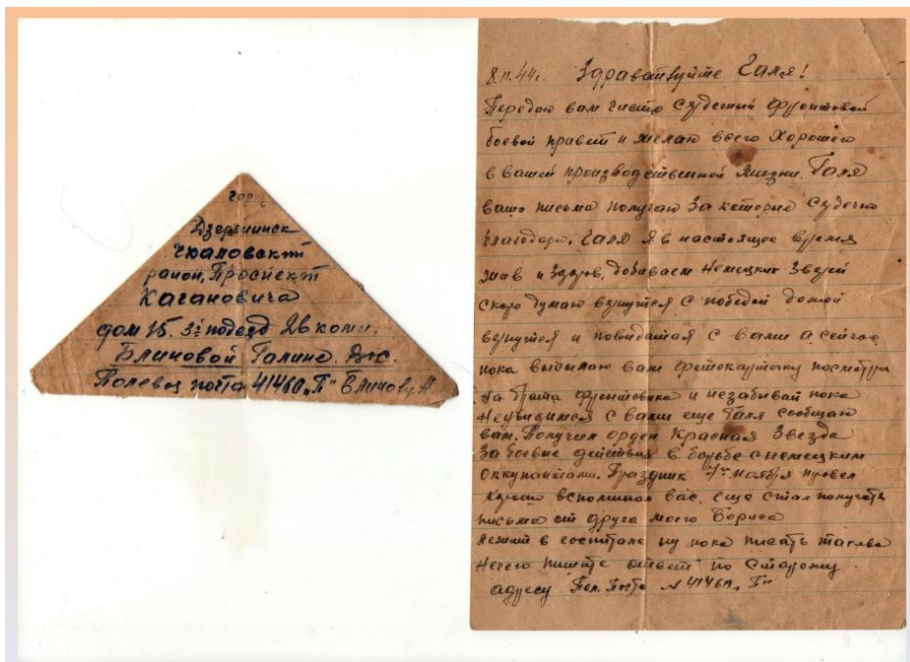 гор.
Дзержинск
Чкаловский
район, Проспект
Кагановича
дом 15. 3й подезд 26 комн.
Блиновой Галине
Полевая почта 41460 „Б" Блинов. Н.
8.11.44г. Здравствуйте Галя!
Передаю вам чисто сердечный фронтовой
боевой привет и желаю всего хорошего
в вашей производственной жизни. Галя
ваше письмо получаю за которые сердечно
благодарю. Галя я в настоящее время
жив и здоров, добиваем немецких зверей
скоро думаю вернутся с победой домой
вернутся и повидатся с вами а сейчас
пока высылаю вам фотокарточку посмотри
на брата фронтовика и незабывай пока
неувидимся с вами еще Галя сообщаю
вам. Получил орден Красная Звезда
за боевые действия в борьбе с немецким
оккупантами. Праздник 7го ноября провел
хорошо вспоминал вас. еще стал получать
письма от друга моего Бориса
лежит в госпитале ну пока писать такова
нечего пишите ответ по старому
адресу Пол. Почта № 41460 „Б"